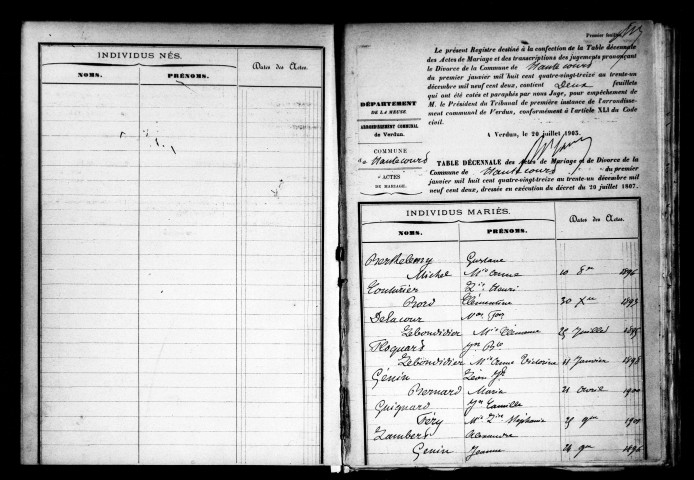 INDIVIDUS NÉS.
Dates des Actes.
NOMS.
PRÉNOMS.
Premier feuillet
Le présent Registre destiné à la confection de la Table décennale
des Actes de Mariage et des transcriptions des jugements prononçant
le Divorce de la Commune de Hautecourt
du premier janvier mil huit cent quatre-vingt-treize au trente-un
décembre mil neuf cent deux, contient Deux feuillets
qui ont été cotés et paraphés par nous Juge, pour empêchement de
M. le Président du Tribunal de première instance de l'arrondisse-
ment communal de Verdun, conformément à l'article XLI du Code
civil.
A Verdun, le 20 juillet 1903.
DÉPARTEMENT
DE LA MEUSE
ARRONDISSEMENT COMMUNAL
de Verdun.
COMMUNE
Hautecourt
ACTES
DE MARIAGE.
TABLE DÉCENNALE des Actes de Mariage et de Divorce de la
Commune de Hautecourt du premier
janvier mil huit cent quatre-vingt-treize au trente-un décembre mil
neuf cent deux, dressée en exécution du décret du 20 juillet 1807.
INDIVIDUS MARIÉS.
Dates des Actes.
NOMS.
PRÉNOMS.
Berthelemy Gustave
Michel Mie Anne 10 8bre 1896
Couturier Henri
Clémentine 30 Xbre 1893
Delacour
Lebondidier Mie 25 Juillet 1895
Floquart
Lebondidier Mie Anne Victorine 11 Janvier 1898
Génin Léon
Bernard Maria 21 Avril 1900
Guignard Camille
Féry Stéphanie 25 9bre
Lambert Alexandre
Génin Jeanne 24 9bre 1896